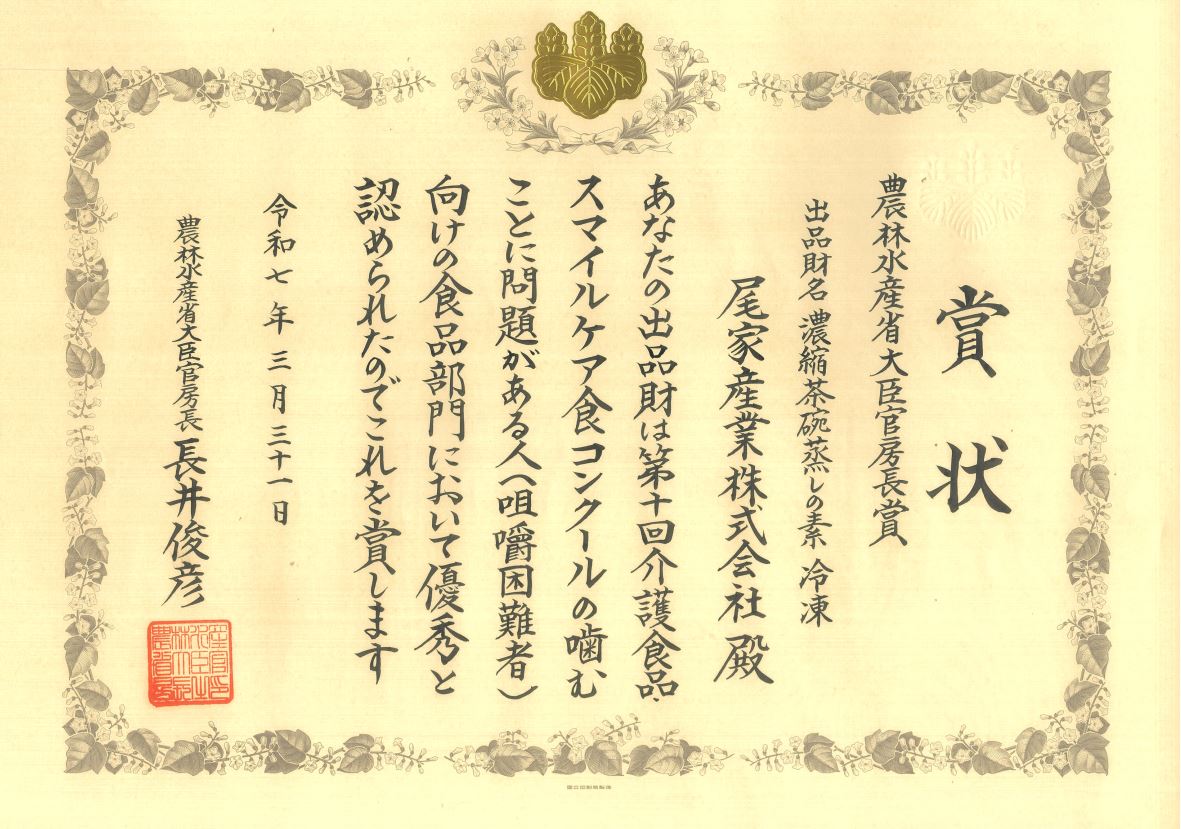 賞状
農林水産省大臣官房長賞
出品財名 濃縮茶碗蒸しの素 冷凍
尾家産業株式会社 殿
あなたの出品財は第十回介護食品・
スマイルケア食コンクールの噛む
ことに問題がある人(咀嚼困難者)
向けの食品部門において優秀と
認められたのでこれを賞します
令和七年三月三十一日
農林水産省大臣官房長 長井俊彦